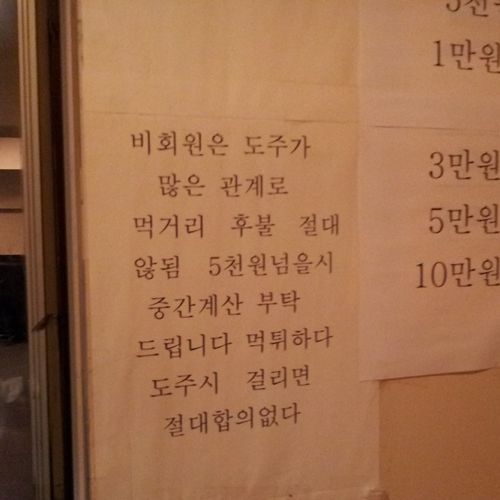 비회원은 도주가
많은 관계로
먹거리 후불 절대
않됨 5천원넘을시
중간계산 부탁
드립니다 먹튀하다
도주시 걸리면
절대합의없다
1만원
3만원
5만원
10만원